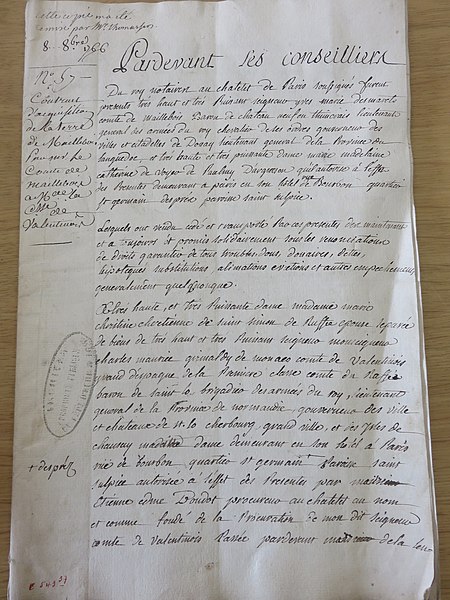 cette copie m'a été
envoié par Mr
8. 8bre 1766
N.° 57
Contrat
d'acquisition
de la terre
de Maillebois
par le
Comte de
Maillebois
a M. de la
Ctesse de
Valentinois
Pardevant Les conseillers
Du roy notaires au chatelet de Paris soussignés furent
presents tres haut et tres Puissant seigneur yves marie desmarets
comte de maillebois Baron de chateau neuf en thimerais lieutenant
general des armées du roy chevalier de ses ordres gouverneur des
villes et citadelles de Doüay lieutenant general de la Province du
languedoc et tres haute et tres puissante Dame marie madelaine
catherine de voyer de Paulmy Dargenson qu'il autorise a l'effet
des Presentes demeurant a paris en son hôtel rue de Bourbon quartier
st germain desprez paroisse saint sulpice
Lesquels ont vendu cedé et transporté Par ces presentes des maintenant
et a toujours et promis solidairement sous les renonciations
de droits garantir de tous troubles, dons, douaires, dettes,
hipoteques substitutions, alienations evictions et autres empechemens
generalement quelconques
A tres haute, et tres Puissante dame madame marie
christine chretienne de saint simon de Ruffec epouse separée
de biens de tres haut et tres Puissant seigneur monseigneur
charles maurice grimaldy de monaco comte de valentinois
grand d'espagne de la Premiere classe comte du
baron de saint lo brigadier des armées du roy, lieutenant
general de la Province de normandie, gouverneur des ville
et chateaux de st lo cherbourg, grand ville, et des isles de
chausey madite dame demeurant en son hôtel a Paris
rue de bourbon quartier st germain Paroisse saint
+ desprez
sulpice autorisée a l'effet des Presentes par
Etienne edme Doudot procureur au chatelet au nom
et comme fondé de la Procuration de mon dit seigneur
comte de valentinois Passée pardevant de la leu